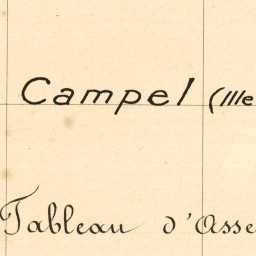 Campel (Ille
Tableau d'Asse